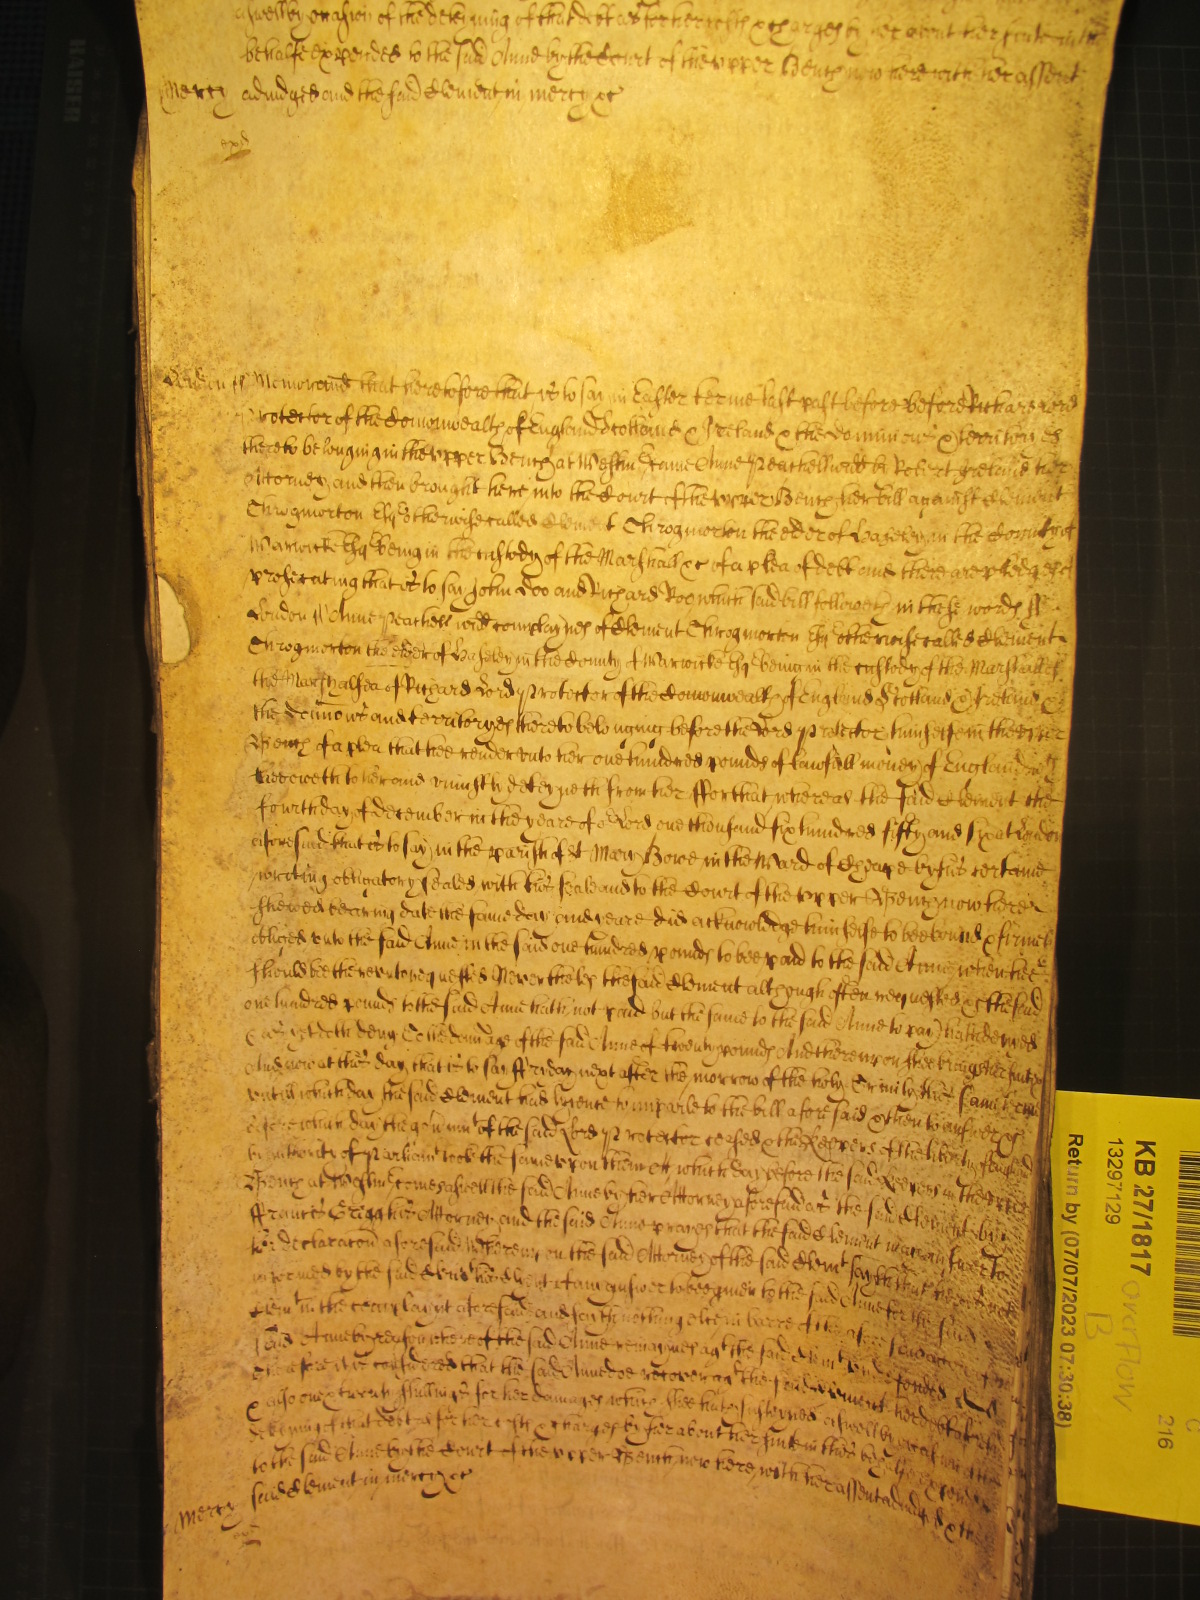 aswell by occasion of the deteyning of that debt as for her costs & charges by her about her suite in this
behalfe expended to the said Anne by the Court of the upper Bench now here with her assent
Mercy adiudged and the said Clement in mercy &c
exd
London ss Memorand that heretofore that is to say in Easter terme last past before Richard Lord
Protector of the Comonwealth of England Scotland & Ireland & the dominions & territoryes
thereto belonging in the upper Bench at Westm came Anne Peachell widd by Robert her
Attorney and then brought here into the Court of the upper Bench her bill against Clement
Throgmorton Esqr otherwise called Clement Throgmorton the elder of Haseley in the County of
Warwicke Esqr being in the custody of the Marshall &c of a plea of debt and there are pledges of
prosecuting that is to say John Doo and Richard Roo which said bill followeth in these words ss
London ss Anne Peachell widd complaynes of Clement Throgmorton Esqr otherwise called Clement
Throgmorton the elder of Haseley in the County of Warwicke Esqr being in the custody of the Marshall of
the Marshalsea of Richard Lord Protector of the Comonwealth of England Scotland & Ireland &
the dominions and territoryes thereto belonging before the Lord Protector himselfe in the upper
Bench of a plea that hee render unto her one hundred pounds of lawfull money of England which
hee oweth to her and uniustly deteyneth from her ffor that whereas the said Clement the
fourth day of december in the yeare of or Lord one thousand six hundred fifty and six at London
aforesaid that is to say in the parish of St Mary Bowe in the Ward of Cheape by his certaine
writing obligatory sealed with his seale and to the Court of the upper Bench now here
shewed beareing date the same day and yeare did acknowledge himselfe to bee bound & firmely
obliged unto the said Anne in the said one hundred pounds to bee paid to the said Anne when hee
should bee thereunto requested Neverthelesse the said Clement although often requested &c the said
one hundred pounds to the said Anne hath not paid but the same to the said Anne to pay hath denyed
& as yet doth deny To the damage of the said Anne of twenty pounds And thereupon shee brings her suite &c
And now at this day that is to say ffriday next after the morrow of the holy Trinity this same terme
untill which day the said Clement had licence to imparle to the bill aforesaid & then to answer &c
before which day the govermt of the said Lord Protector ceased & the Keepers of the liberty of England
by authority of Parliamt tooke the same upon them att which day before the said Keepers in the upper
Bench at Westm comes aswell the said Anne by her Attorney aforesaid as the said Clement by
ffrancis Grigg his Attorney and the said Anne prayes that the said Clement may answer to
her declaracon aforesaid Whereupon the said Attorney of the said Clemt sayth that hee
informed by the said Clemt his Clyent of any answer to bee given to the said Anne for the said
Clemt in the complaynt aforesaid and sayth nothing else in barre of the aforesaid
said Anne whereof the said Anne remaynes agt the said Clemt undefended &c
Therefore it is considered that the said Anne doe recover agt the said Clement her debt aforesaid
& also one & twenty shillings for her damages which shee hath susteyned aswell by occasion of the
deteyning of that debt as for her costs & charges by her about her suite in this behalfe expended
to the said Anne by the Court of the upper Bench now here with her assent adiudged & the
Mercy said Clement in mercy &c
exd
KB 27/1817
13297129
Return by (07/07/2023 07:30:38)
overflow
B
216